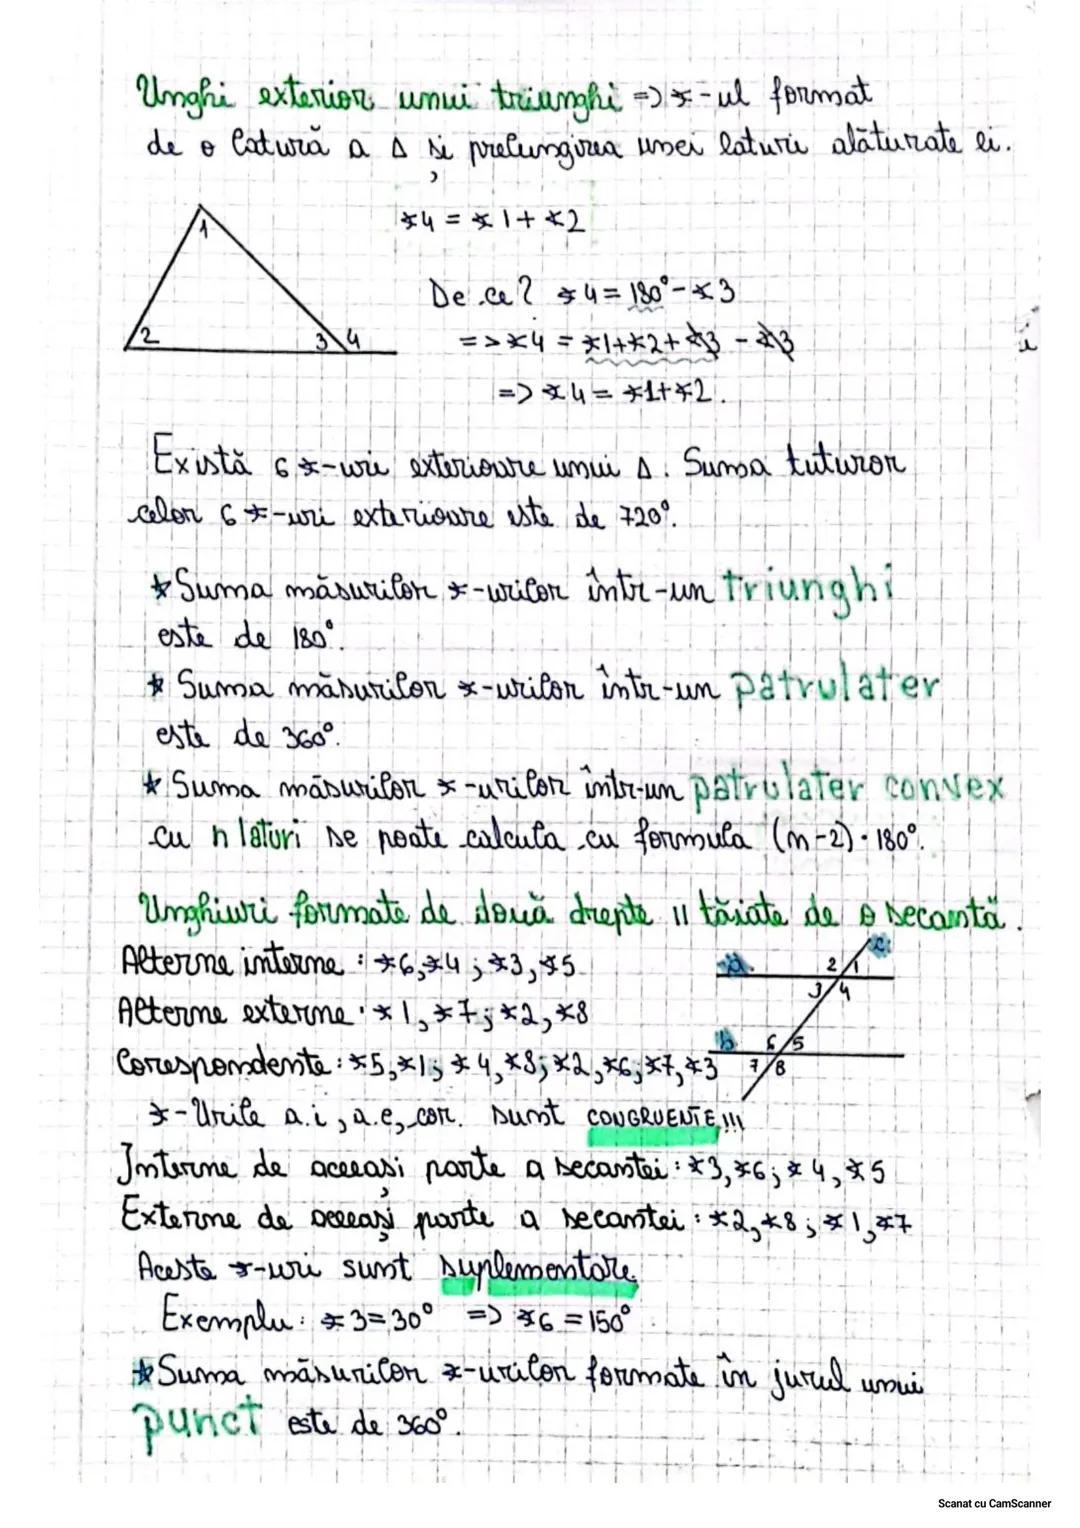 Unghi exterior unui triunghi => ∢-ul format
de o latură a Δ și prelungirea unei laturi alăturate ei.
∢4 = ∢1 + ∢2
1
De ce? ∢4 = 180° - ∢3
2 3 4
=> ∢4 = ∢1+∢2+∢3 - ∢3
=> ∢4 = ∢1+∢2.
Există 6 ∢-uri exterioare unui Δ. Suma tuturor
celor 6 ∢-uri exterioare este de 720°.
* Suma măsurilor ∢-urilor într-un triunghi
este de 180°.
* Suma măsurilor ∢-urilor într-un patrulater
este de 360°.
* Suma măsurilor ∢-urilor într-un patrulater convex
cu n laturi se poate calcula cu formula (n-2)·180°.
Unghiuri formate de două drepte || tăiate de o secantă.
Alterne interne : ∢6,∢4 ; ∢3,∢5
a. 2 1 c
3 4
Alterne externe : ∢1,∢7; ∢2,∢8
b 6 5
Corespondente : ∢5,∢1; ∢4,∢8; ∢2,∢6; ∢7,∢3
7 8
∢-Urile a.i, a.e, cor. sunt CONGRUENTE!!!
Interne de aceeași parte a secantei : ∢3,∢6; ∢4,∢5
Externe de aceeași parte a secantei : ∢2,∢8 ; ∢1,∢7
Aceste ∢-uri sunt suplementare.
Exemplu : ∢3=30° => ∢6=150°
* Suma măsurilor ∢-urilor formate în jurul unui
punct este de 360°.
Scanat cu CamScanner